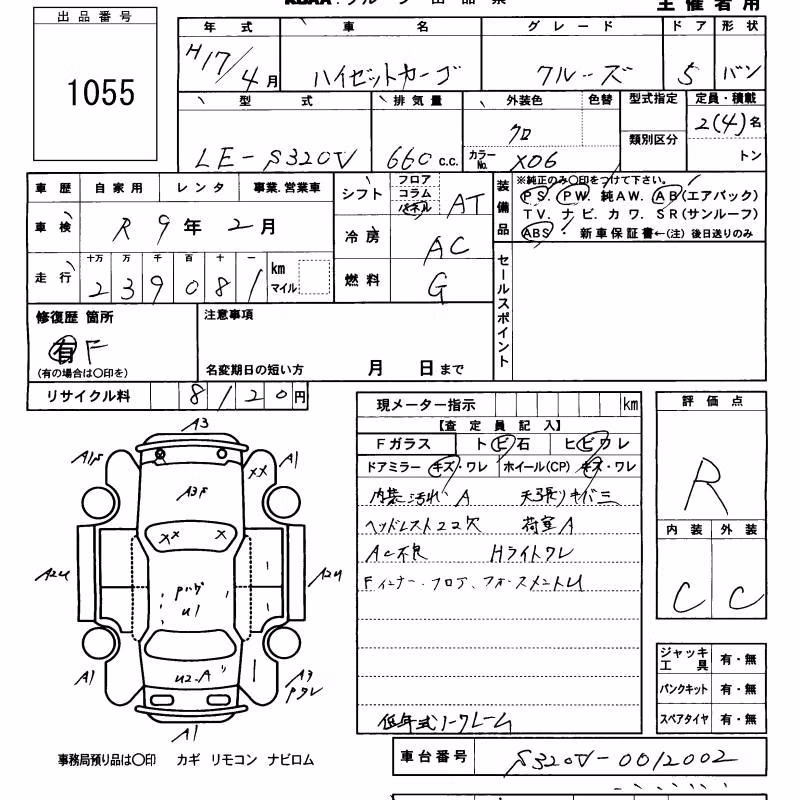 出品番号
1055
主催者用
年式 車名 グレード ドア 形状
H17/4月 ハイゼットカーゴ クルーズ 5 バン
型式 排気量 外装色 色替 型式指定 定員・積載
LE-S320V 660c.c. クロ 類別区分 2(4)名
カラーNo. X06 トン
車歴 自家用 レンタ 事業.営業車
車検 R9年2月
走行 十万 万 千 百 十 一 km マイル
239081
シフト フロア コラム パネル AT
冷房 AC
燃料 G
装備品 ※純正のみ○印をつけて下さい。
PS. PW. 純AW. AB(エアバック)
TV. ナビ. カワ. SR(サンルーフ)
ABS・ 新車保証書←(注) 後日送りのみ
セールスポイント
修復歴 箇所 注意事項
有 F
(有の場合は○印を) 名変期日の短い方 月 日まで
リサイクル料 8120円
現メーター指示 km
【査定員記入】
Fガラス トビ石 ヒビワレ
ドアミラー キズ・ワレ ホイール(CP) キズ・ワレ
内装汚れ A 天張りキバミ
ヘッドレスト22欠 荷室A
AC不良 Hライトワレ
Fインナー・フロア、フォースメントU
低年式ノークレーム
評価点
R
内装 外装
C C
ジャッキ工具 有・無
パンクキット 有・無
スペアタイヤ 有・無
A3
A1 A1
A3F
XX
XX X
Pハゲ
U1
A2U A2U
U2-A
A1 A3
A1
事務局預り品は○印 カギ リモコン ナビロム
車台番号 S320V-0012002